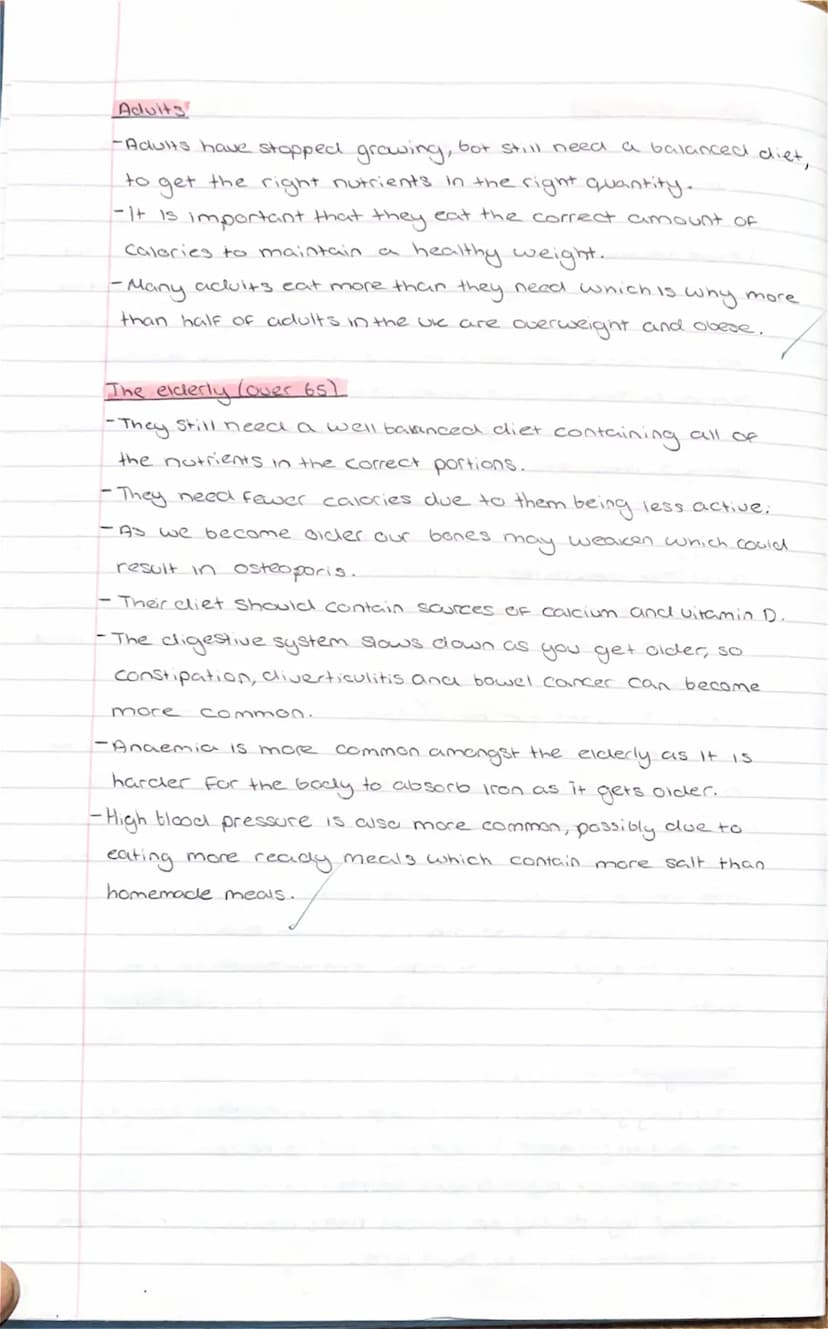 Adults
-Adults have stopped growing, but still need a balanced diet,
to get the right nutrients in the right quantity.
-It is important that they eat the correct amount of
calories to maintain a healthy weight.
-Many adults eat more than they need which is why more
than half of adults in the UK are overweight and obese.
The elderly (over 65)
-They still need a well balanced diet containing all of
the nutrients in the correct portions.
-They need fewer calories due to them being less active.
-As we become older our bones may weaken which could
result in osteoporis.
-Their diet should contain sources of calcium and vitamin D.
-The digestive system slows down as you get older, so
constipation, diverticulitis and bowel cancer can become
more common.
-Anaemia is more common amongst the elderly as it is
harder for the body to absorb iron as it gets older.
-High blood pressure is also more common, possibly due to
eating more ready meals which contain more salt than
homemade meals.